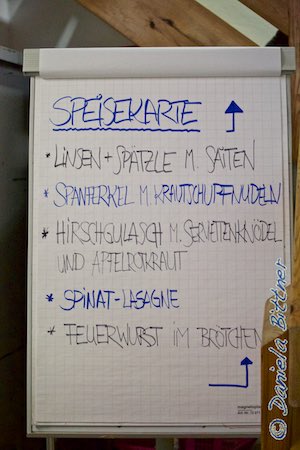 SPEISEKARTE
* LINSEN + SPÄTZLE M. SAITEN
* SPANFERKEL M. KRAUTSCHUPFNUDELN
* HIRSCHGULASCH M. SERVIETTENKNÖDEL
UND APFELROTKRAUT
* SPINAT-LASAGNE
* FEUERWURST IM BRÖTCHEN
© Daniela Bittner